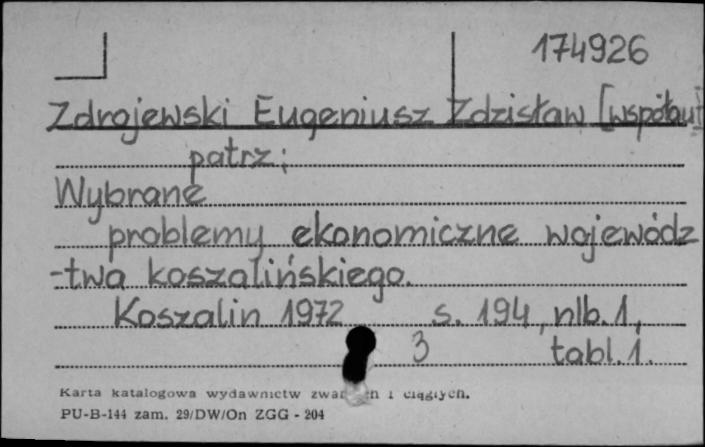 174926
Zdrojewski Eugeniusz Zdzisław [współaut
patrz:
Wybrane
problemy ekonomiczne wojewódz
-twa koszalińskiego.
Koszalin 1972 s. 194, nlb. 1,
3 tabl. 1.
Karta katalogowa wydawnictw i ciągłych.
PU-B-144 zam. 29/DW/On ZGG - 204